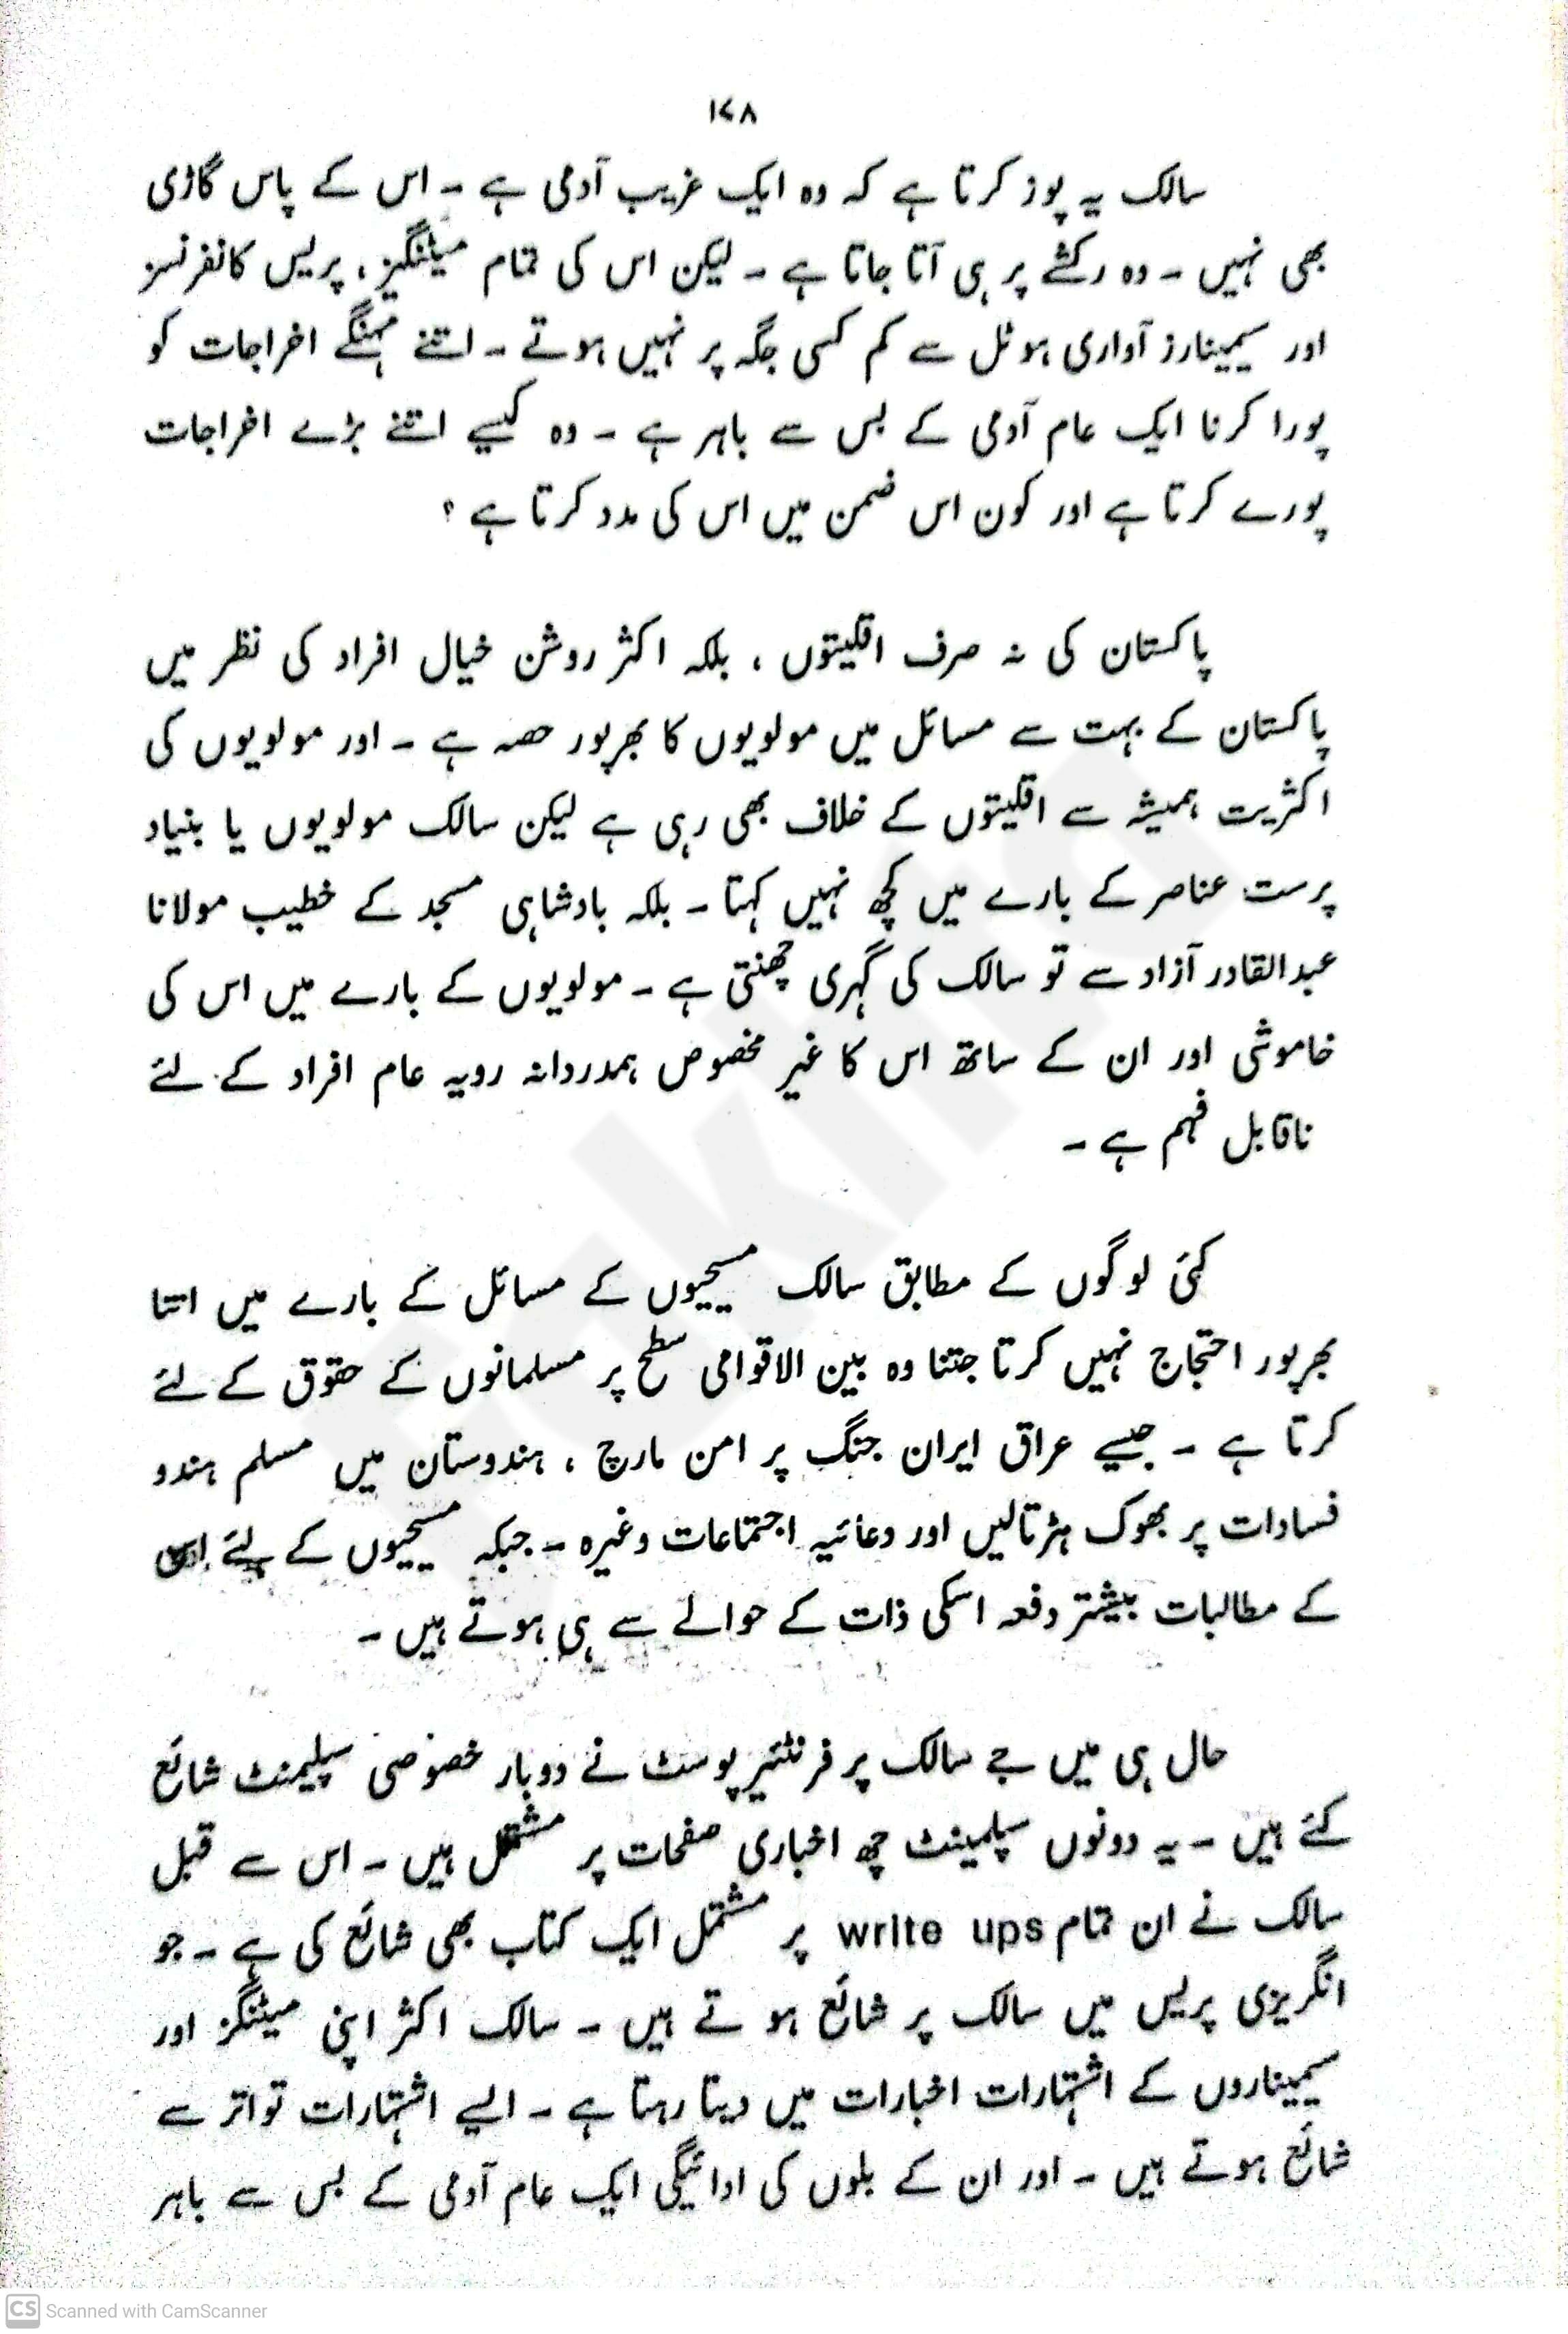 ۱۷۸
سالک یہ پوز کرتا ہے کہ وہ ایک غریب آدمی ہے ۔ اس کے پاس گاڑی
بھی نہیں ۔ وہ رکشے پر ہی آتا جاتا ہے ۔ لیکن اس کی تمام میٹنگیز ، پریس کانفرنسز
اور سیمینارز آواری ہوٹل سے کم کسی جگہ پر نہیں ہوتے ۔ اتنے مہنگے اخراجات کو
پورا کرنا ایک عام آدمی کے بس سے باہر ہے ۔ وہ کیسے اتنے بڑے اخراجات
پورے کرتا ہے اور کون اس ضمن میں اس کی مدد کرتا ہے ؟
پاکستان کی نہ صرف اقلیتوں ، بلکہ اکثر روشن خیال افراد کی نظر میں
پاکستان کے بہت سے مسائل میں مولویوں کا بھرپور حصہ ہے ۔ اور مولویوں کی
اکثریت ہمیشہ سے اقلیتوں کے خلاف بھی رہی ہے لیکن سالک مولویوں یا بنیاد
پرست عناصر کے بارے میں کچھ نہیں کہتا ۔ بلکہ بادشاہی مسجد کے خطیب مولانا
عبدالقادر آزاد سے تو سالک کی گہری چھنتی ہے ۔ مولویوں کے بارے میں اس کی
خاموشی اور ان کے ساتھ اس کا غیر مخصوص ہمدردانہ رویہ عام افراد کے لئے
ناقابل فہم ہے ۔
کئی لوگوں کے مطابق سالک مسیحیوں کے مسائل کے بارے میں اتنا
بھرپور احتجاج نہیں کرتا جتنا وہ بین الاقوامی سطح پر مسلمانوں کے حقوق کے لئے
کرتا ہے ۔ جیسے عراق ایران جنگ پر امن مارچ ، ہندوستان میں مسلم ہندو
فسادات پر بھوک ہڑتالیں اور دعائیہ اجتماعات وغیرہ ۔ جبکہ مسیحیوں کے لئے اس
کے مطالبات بیشتر دفعہ اسکی ذات کے حوالے سے ہی ہوتے ہیں ۔
حال ہی میں جے سالک پر فرنٹئیر پوسٹ نے دوبار خصوصی سپلیمنٹ شائع
کئے ہیں ۔ یہ دونوں سپلمینٹ چھ اخباری صفحات پر مشتمل ہیں ۔ اس سے قبل
سالک نے ان تمام write ups پر مشتمل ایک کتاب بھی شائع کی ہے ۔ جو
انگریزی پریس میں سالک پر شائع ہو تے ہیں ۔ سالک اکثر اپنی میٹنگز اور
سیمیناروں کے اشتہارات اخبارات میں دیتا رہتا ہے ۔ ایسے اشتہارات تواتر سے
شائع ہوتے ہیں ۔ اور ان کے بلوں کی ادائیگی ایک عام آدمی کے بس سے باہر
CS Scanned with CamScanner